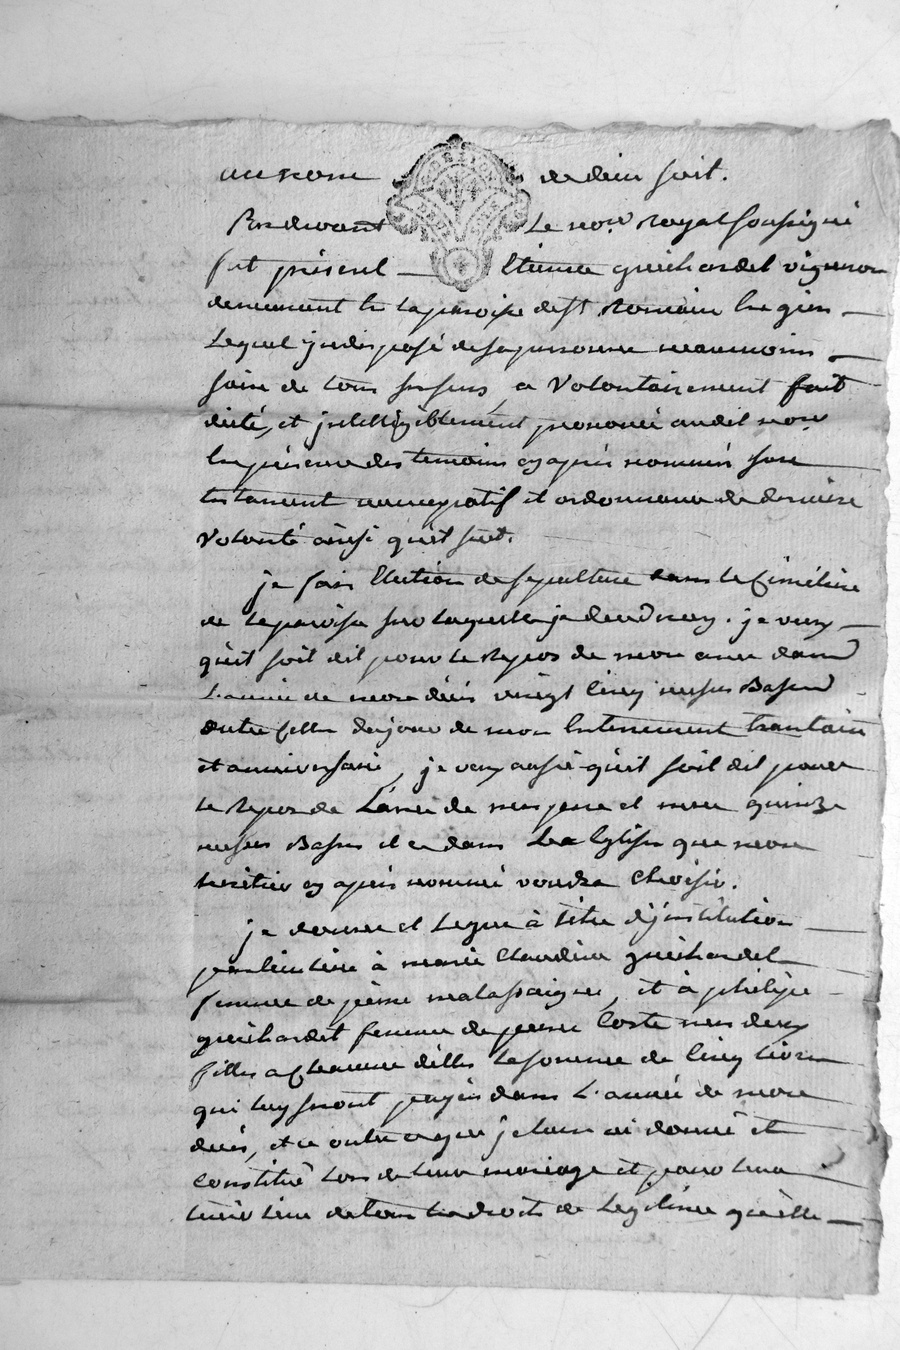 au nom de dieu soit.
Pardevant Le no.re Royal soussigné
fut présent Etienne guichardet vigneron
demeurant en la paroisse de st Romain En gier
Lequel jndisposé de sa personne neanmoins
sain de tous ses sens, a Volontairement fait
dicté, et jntelligiblement prononcé audit no.re
En présence des temoins cy après nommés son
testament nuncupatif et ordonnance de derniere
Volonté ainsi qu'il suit.
je fais Election de sepulture dans le Cimetiere
de la paroisse sur laquelle je decederay. je veux
qu'il soit dit pour le Repos de mon ame dans
L'année de mon décès vingt cinq messes Basses
outre celles du jour de mon Enterrement trantain
et anniversaire, je veux aussi qu'il soit dit pour
le Repos de L'ame de mes pere et mere quinze
messes Basses et ce dans Les Eglises que mon
heritier cy après nommé voudra Choisir.
je donne et Legue à titre d'jnstitution
particuliere à marie Claudine guichardet
femme de pierre malassaigne, et à philipe
guichardet femme de pierre Coste mes deux
filles a Chacune d'elles La somme de Cinq livres
qui luy seront payés dans L'année de mon
décès, et ce outre ce que je leur ai donné et
Constitué Lors de leur mariage et pour leur
tenir lieu de tous les droits de Legitime qu'elle